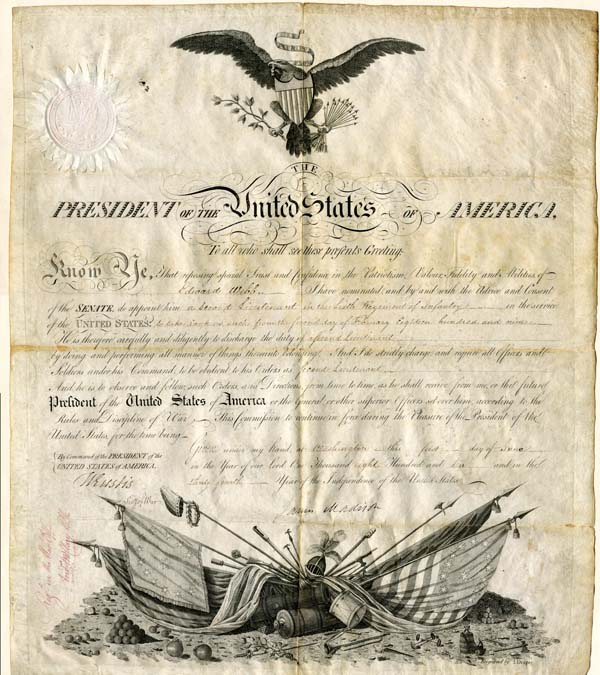 THE
PRESIDENT OF THE United States OF AMERICA,
To all who shall see these presents Greeting:
Know Ye, That reposing special Trust and Confidence in the Patriotism, Valour, Fidelity and Abilities of
Edward Webb I have nominated, and by and with the Advice and Consent
of the SENATE, do appoint him a Second Lieutenant in the Sixth Regiment of Infantry in the service
of the UNITED STATES: to take rank as such from the second day of February Eighteen hundred and nine
He is therefore carefully and diligently to discharge the duty of Second Lieutenant
by doing and performing all manner of things thereunto belonging. And I do strictly charge, and require all Officers and
Soldiers under his Command, to be obedient to his Orders as Second Lieutenant
And he is to observe and follow such Orders, and Directions, from time to time, as he shall receive from me, or the future
President of the United States of America or the General or other superior Officers set over him, according to the
Rules and Discipline of War. This Commission to continue in force during the Pleasure of the President of the
United States, for the time being.
Given under my hand, at Washington this first day of June
in the Year of our Lord One Thousand eight Hundred and ten and in the
thirty fourth Year of the Independence of the United States.
By Command of the PRESIDENT of the
UNITED STATES of AMERICA.
W Eustis
Sec'y of War
James Madison
Engraved by J. Draper